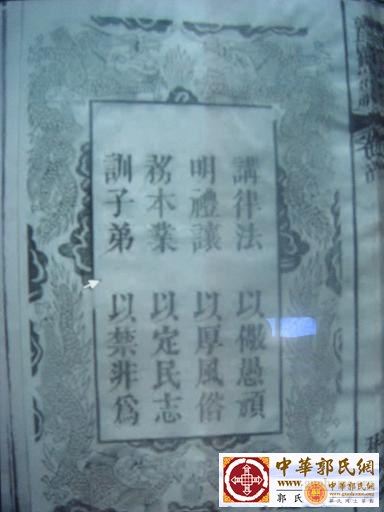 講律法 以儆愚頑
明禮讓 以厚風俗
務本業 以定民志
訓子弟 以禁非爲
卷首
中華郭氏網
www.
郭氏